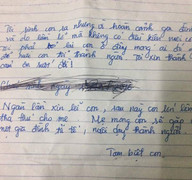 Tôi sinh con ra nhưng vì hoàn cảnh gia đình
và do bệnh tật mà không có điều kiện nuôi con
tôi phải bỏ lại con ở đây mong ai đó
nuôi con tôi thành người. Tôi xin thành
cảm ơn rất
Ngàn lần xin lỗi con, sau này con lớn lên
tha thứ cho mẹ. Mẹ mong con sẽ gặp
một gia đình tử tế, nuôi dạy thành người.
Tạm biệt con,